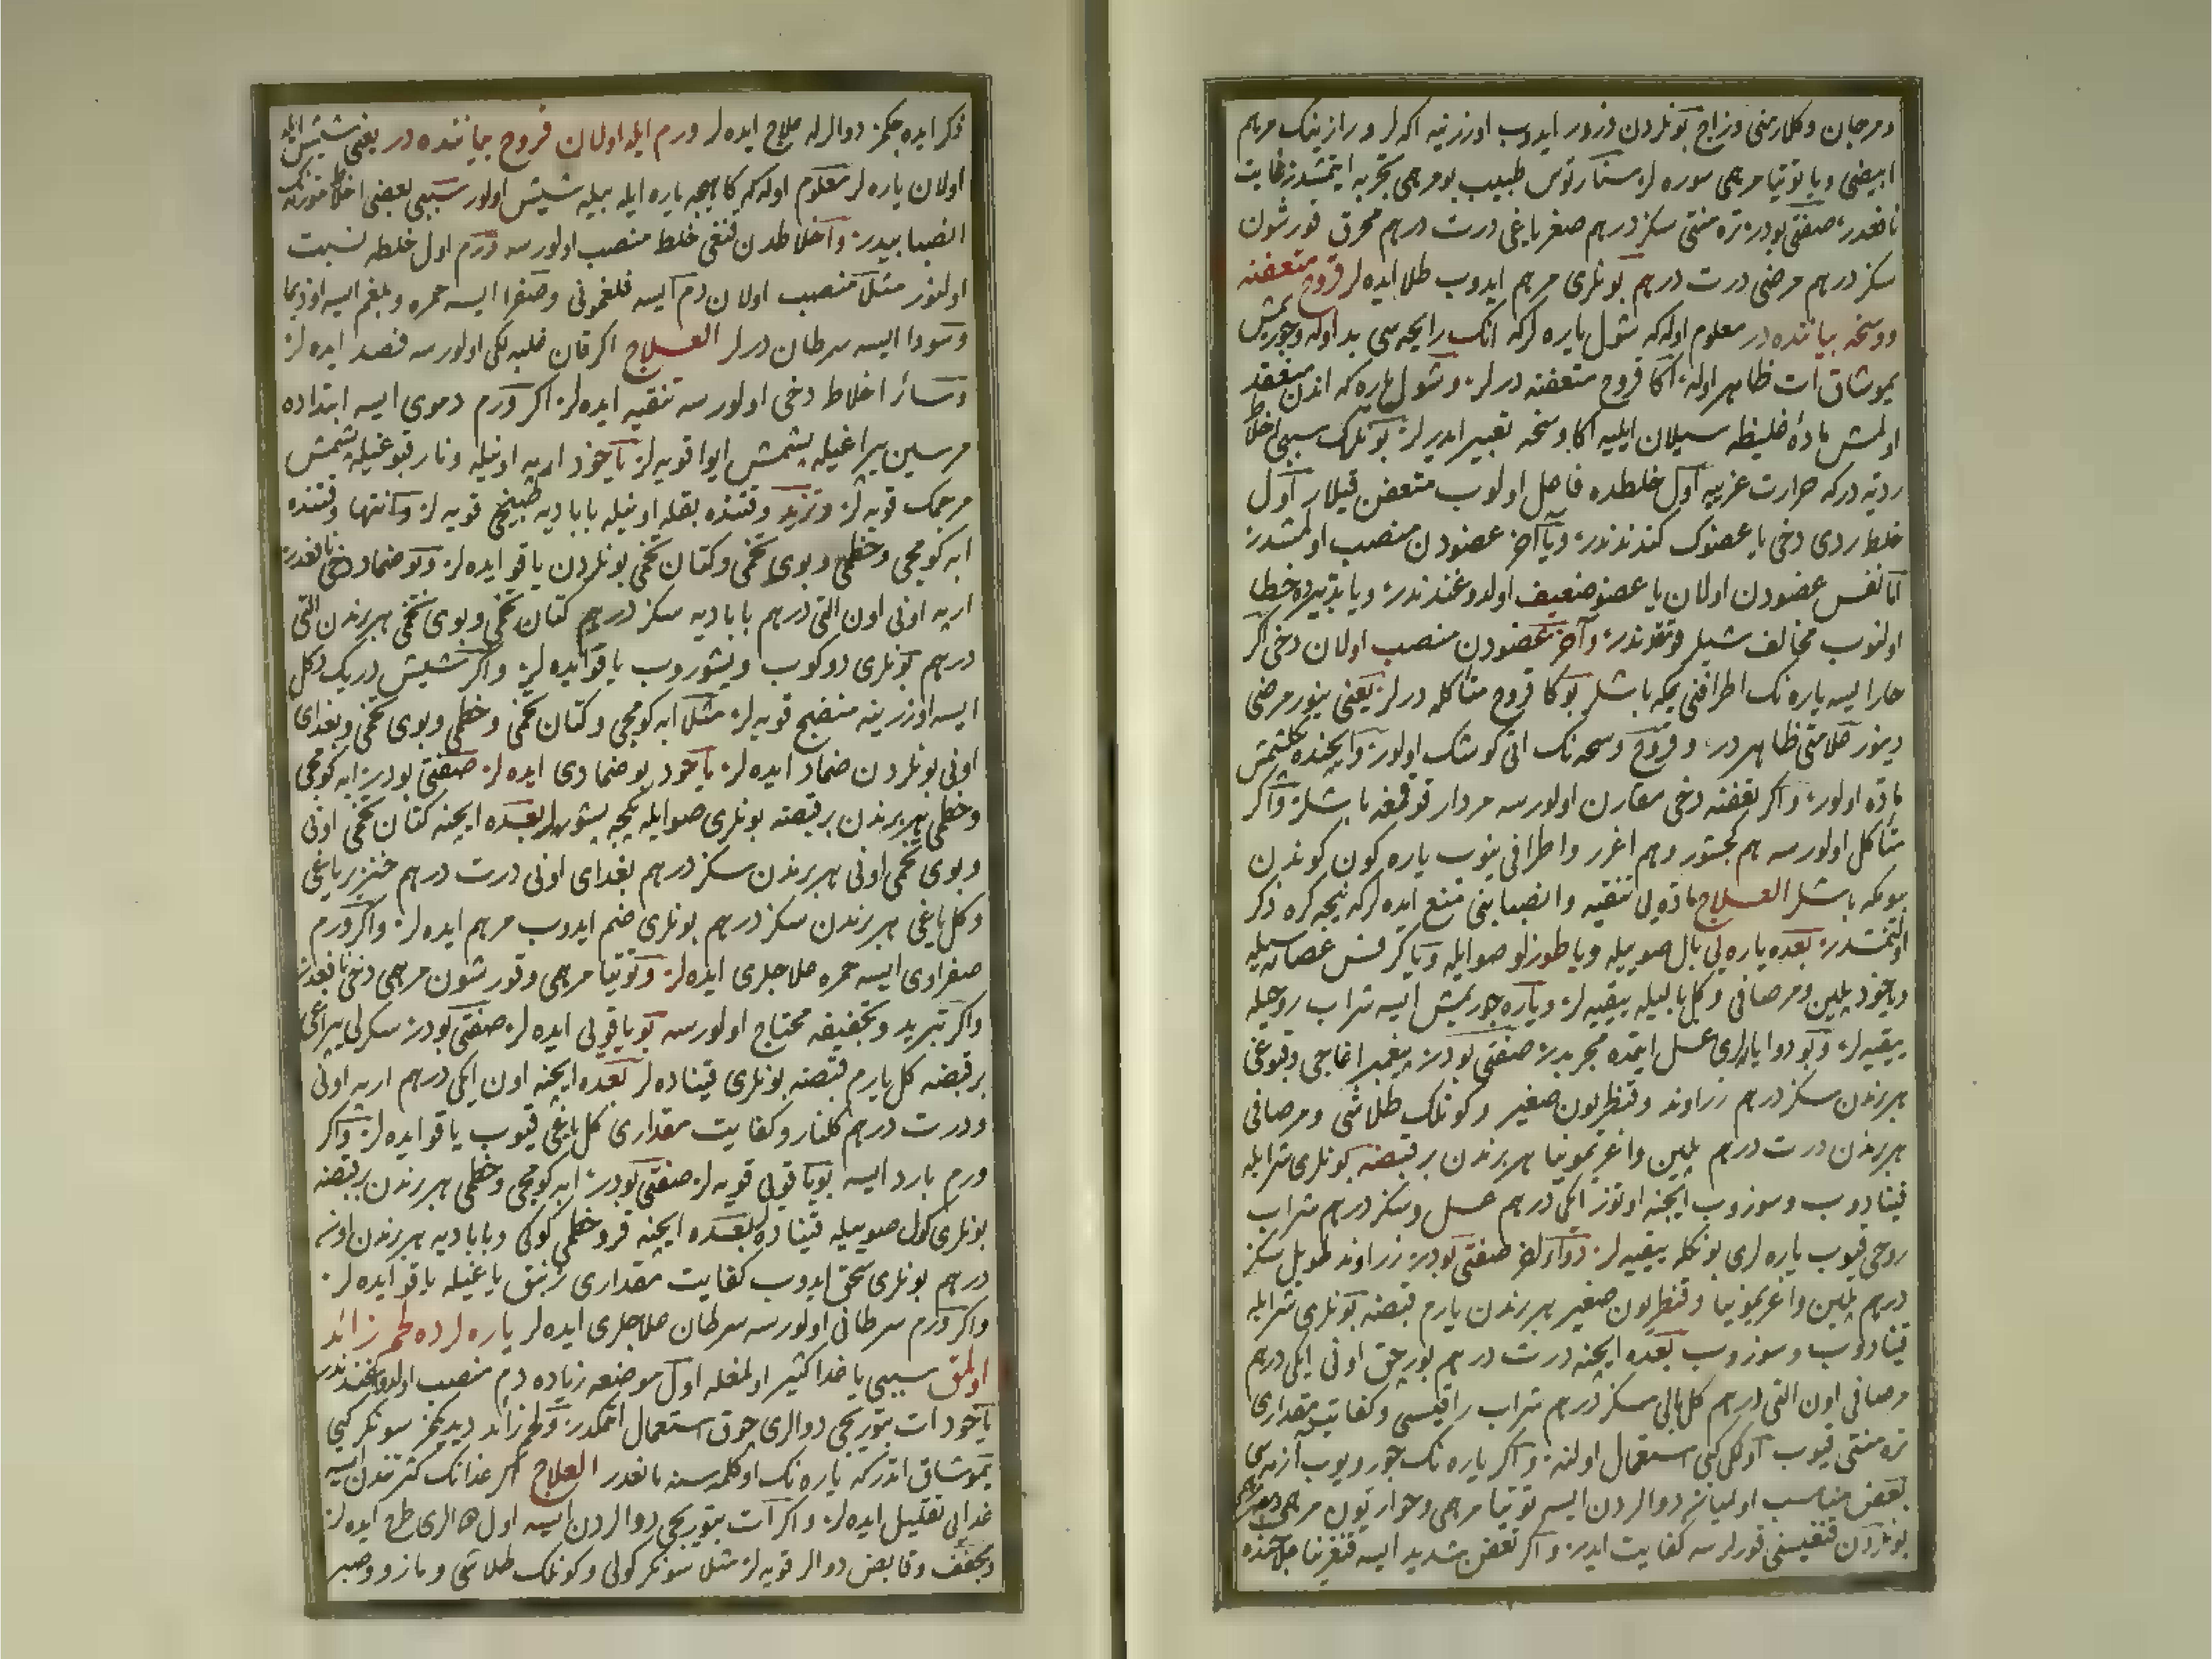 ومرجان وكلارمنى وزاج بونلردن ذرور ايدوب اوزرينه اكه لر و رازينك مرهم
ابيضى ويا توتيا مرهمى سوره لر سنارتوس طبيب بو مرهمى تجربه ايتمشدر غايت
نافعدر صفتى بودر تره منتى سكز درهم صغر ياغى درت درهم محرق قورشون
سكز درهم مرضى درت درهم بونلرى مرهم ايدوب طلا ايده لر قروح متعفنه
ووسخه بياننده در معلوم اوله كه شول ياره لركه انك رايحه سى بد اوله وچوريمش
يموشاق ات ظاهر اوله اكا قروح متعفنه درلر وشول ياره كه اندن منعقد
اولمش ماده غليظه سيلان ايليه اكا وسخه تعبير ايدرلر بونلرك سببى اخلاط
رديه دركه حرارت غريبه اول خلطده فاصل اولوب متعفن قيلار اول
خلط ردى دخى يا عضوك كندندندر ويا آخر عضودن منصب اولمشدر
اما نفس عضودن اولان يا عضو ضعيف اولدوغندندر ويا تدبيرده خطا
اولنوب مخالف شيلر قونقدندر وآخر عضودن منصب اولان دخى اكر
حار ايسه ياره نك اطرافنى يمكه باشلر بوكا قروح متاكله درلر يعنى يينور مرضى
دينور علامتى ظاهر در و قروح وسخه نك اتى كوشك اولور وايچنده كلشمش
ماده اولور واكر تعفنه دخى مقارن اولورسه مردار قوقمغه باشلر واكر
متاكل اولورسه هم كجشور وهم اغرر واطرافى ينوب ياره كون كوندن
بيومكه باشلر العلاج ماده يى تنقيه وانصبابنى منع ايده لركه نيجه كره ذكر
اولنمشدر بعده ياره يى بال صوييله ويا طوزلو صوايله ويا كرفس عصاره سيله
وياخود پلين ومر صافى وكل باليله ييقيه لر وياره چوريمش ايسه شراب روحيله
ييقيه لر وبو دوا يارلرى غسل ايتمده مجربدر صفتى بودر پيغمبر اغاجى وقبوغى
هربرندن سكز درهم زراوند وقنطريون صغير وكونلك طلاشى ومر صافى
هربرندن درت درهم پلين واغريمونيا هر برندن بر قبضه بونلرى شرابله
قينادوب وسوزوب ايچنه اوتوز ايكى درهم عسل وسكز درهم شراب
روحى قيوب ياره لرى بونكله ييقيه لر دواء اخر صفتى بودر زراوند طويل سكز
درهم پلين واغريمونيا وقنطريون صغير هر برندن يارم قبضه بونلرى شرابله
قينادوب وسوزوب بعده ايچنه درت درهم بورچق اونى ايكى درهم
مر صافى اون التى درهم كل بالى سكز درهم شراب راقيسى وكفايت مقدارى
تره منتى قيوب اولكى كبى استعمال اولنه واكر ياره نك چورويوب ازمه سى
بعض مناسب اولميان دوالردن ايسه توتيا مرهمى وحواريون مرهمى
بونلردن قنغيسنى قورلرسه كفايت ايدر واكر تعفن شديد ايسه قنغرينا علاجنده
ذكر ايده جكمز دوالرله علاج ايده لر ورم ايله اولان قروح بياننده در يعنى شيش ايله
اولان ياره لر معلوم اوله كه كاهيجه ياره ايله بيله شيش اولور سببى بعضى اخلاط متورمه نك
انصبابيدر واخلاطدن قنغى خلط منصب اولورسه ورم اول خلطه نسبت
اولنور مثلا منصب اولان دم ايسه فلغمونى وصفرا ايسه حمره وبلغم ايسه اوذيما
وسودا ايسه سرطان درلر العلاج اكر قان غلبه لكى اولورسه فصد ايده لر
وسائر اخلاط دخى اولورسه تنقيه ايده لر اكر ورم دموى ايسه ابتداده
مرسين يپراغيله پشمش ايوا قويه لر ياخود ارپه اونيله ونار قبوغيله پشمش
مرجمك قويه لر وتزيد وقتنده بقله اونيله بابا ديه طبيخى قويه لر وانتها وقتنده
ابه كومجى وخطمى وبوى تخمى وكتان تخمى بونلردن ياقو ايده لر وبو ضماد دخى نافعدر
ارپه اونى اون التى درهم بابا ديه سكز درهم كتان تخمى وبوى تخمى هر برندن التى
درهم بونلرى دوكوب وپشوروب ياقو ايده لر واكر شيش دريك دكل
ايسه اوزرينه منضج قويه لر مثلا ابه كومجى وكتان تخمى وخطمى وبوى تخمى وبغداى
اونى بونلردن ضماد ايده لر ياخود بو ضمادى ايده لر صفتى بودر ابه كومجى
وخطمى هر برندن برقبضه بونلرى صوايله نيجه پشوره لر بعده ايچنه كتان تخمى اونى
وبوى تخمى اونى هر برندن سكز درهم بغداى اونى درت درهم خنزير ياغى
وكل ياغى هر برندن سكز درهم بونلرى ضم ايدوب مرهم ايده لر واكر ورم
صفراوى ايسه حمره علاجلرى ايده لر وتوتيا مرهمى وقورشون مرهمى دخى نافعدر
واكر تبريد وتجفيفه محتاج اولورسه بو ياقويى ايده لر صفتى بودر سكرلى يپراغى
برقبضه كل يارم قبضه بونلرى قيناده لر بعده ايچنه اون ايكى درهم ارپه اونى
ودرت درهم كلنار وكفايت مقدارى كل ياغى قيوب ياقو ايده لر واكر
ورم بارد ايسه بو ياقويى قويه لر صفتى بودر ابه كومجى وخطمى هر برندن برقبضه
بونلرى كول صوييله قيناده لر بعده ايچنه قرو خطمى كوكى وبابا ديه هر برندن اونر
درهم بونلرى سحق ايدوب كفايت مقدارى زنبق ياغيله ياقو ايده لر
واكر ورم سرطانى اولورسه سرطان علاجلرى ايده لر ياره لرده لحم زائد
اولمق سببى يا غدا كثير اولمغله اول موضعه زياده دم منصب اولدوغندندر
ياخود ات بتوريجى دوالرى چوق استعمال اتمكدر ولحم زائد ديديكمز سونكر كبى
يموشاق اتدركه ياره نك اوكلمه سنه مانعدر العلاج اكر غدانك كثرتندن ايسه
غدايى تقليل ايده لر واكر ات بتوريجى دوالردن ايسه اول دوالرى طرح ايده لر
ومجفف وقابض دوالر قويه لر مثلا سونكر كولى وكونلك طلاشى ومازو وصبر